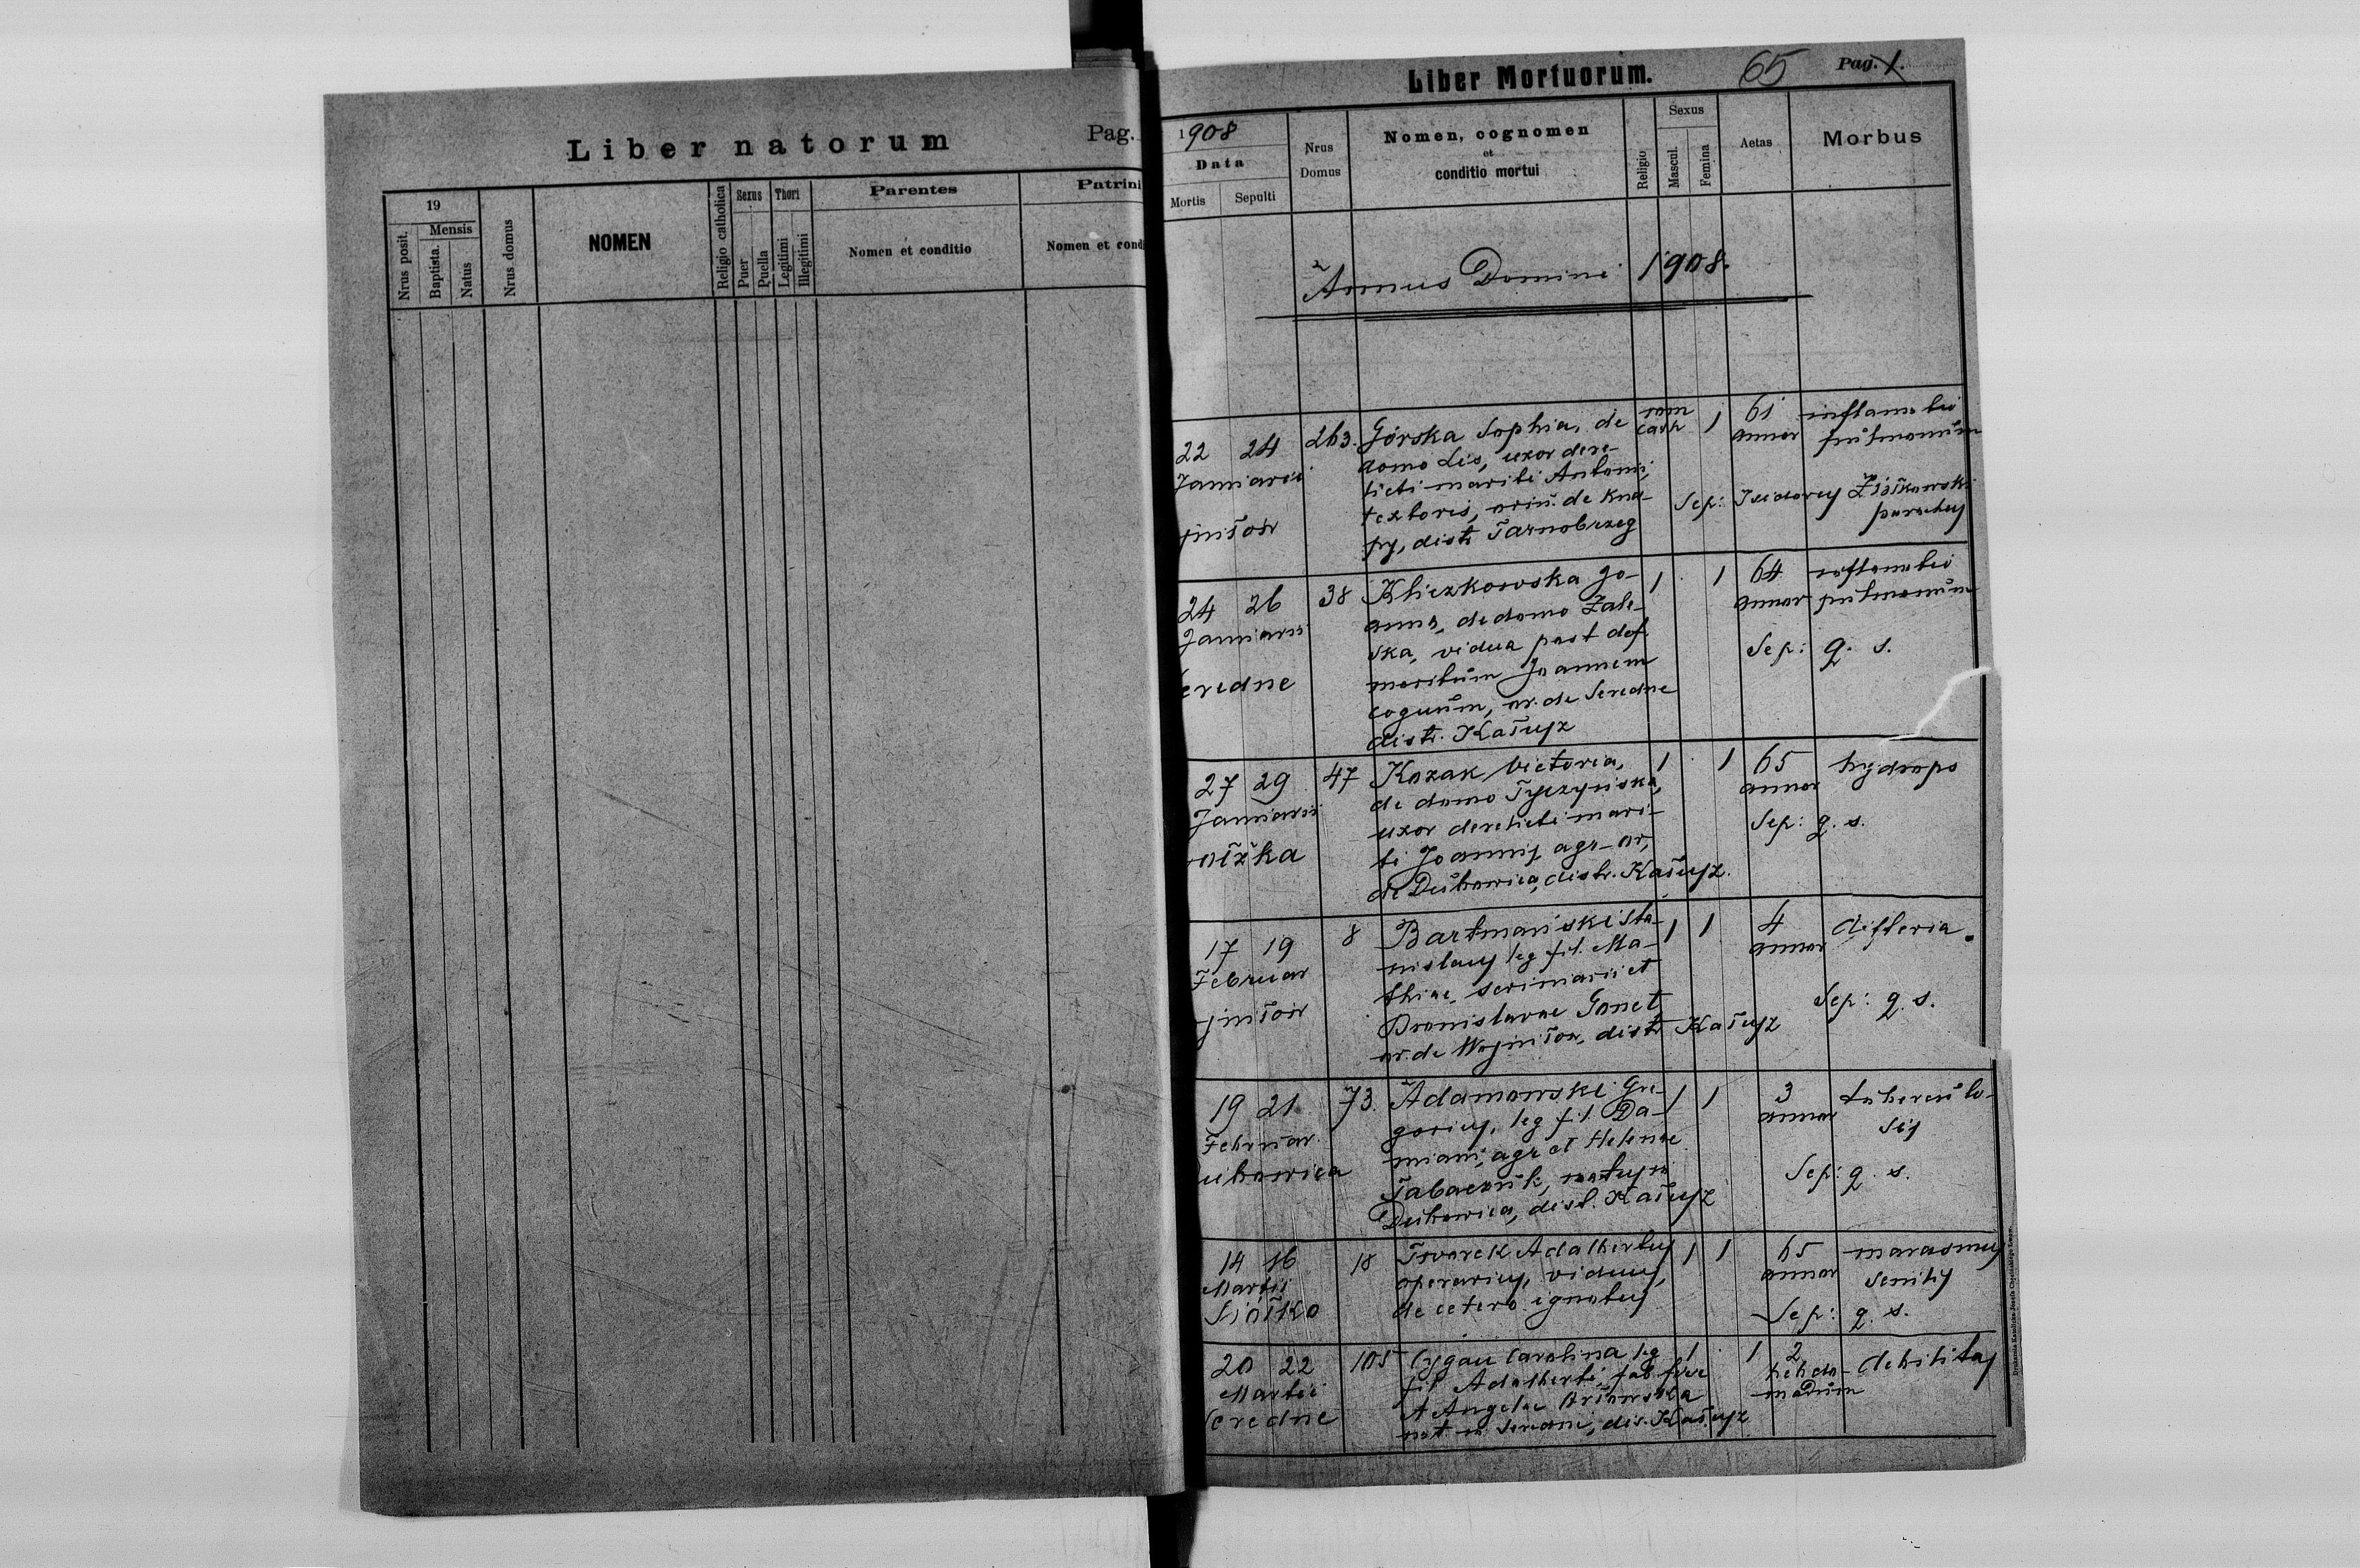 Liber natorum
Pag.
19
Mensis
Nrus posit.
Baptista.
Natus
Nrus domus
NOMEN
Religio catholica
Sexus
Puer
Puella
Thori
Legitimi
Illegitimi
Parentes
Nomen et conditio
Patrini
Nomen et condi
Liber Mortuorum.
65
Pag. 1.
1908
Data
Mortis
Sepulti
Nrus
Domus
Nomen, cognomen
et
conditio mortui
Religio
Sexus
Mascul.
Femina
Aetas
Morbus
Annus Domini 1908.
22 24
Januarii
263.
Górska Sophia, de
domo Lis, uxor dere-
licti mariti Antonii,
textoris, oriu. de Kna-
py, distr Tarnobrzeg
rom
cath
1
61
annor
inflamatio
pulmonum
Sep: Isidorus Ziółkowski
parochus
24 26
Januarii
eredne
38
Kliczkowska Jo-
anna, de domo Zale-
ska, vidua post def.
maritum Joannem
coquum, or. de Seredne
distr. Kałusz
1
1
64
annor
inflamatio
pulmonum
Sep: q. s.
27 29
Januarii
47
Kozak Victoria,
de domo Tyczyńska,
uxor derelicti mari-
ti Joannis agr- or,
de Dubowica, distr. Kałusz.
1
1
65
annor
hydrops
Sep: q. s.
17 19
Februar
jniłów
8
Bartmański Sta-
nislaus leg fil. Ma-
thiae, scriniarii et
Bronislavae Gonet
or. de Wojniłów, distr Kałusz
1
1
4
annor
difteria.
Sep: q. s.
19 21
Februar.
ubowica
73.
Adamowski Gre-
gorius, leg fil. Da-
miani, agr et Helenae
Tabaczuk, natus in
Dubowica, dist. Kałusz
1
1
3
annor
tuberculo-
sis
Sep: q. s.
14 16
Martii
18
Tworek Adalbertus
operarius, viduus,
de cetero ignotus
1
1
65
annor
marasmus
senilis
Sep: q. s.
20 22
Martii
Seredne
105
Cygan Carolina leg
fil Adalberti, fab. ferr
et Angelae
nat. in Seredne, dis. Kałusz
1
1
2
hebdo-
madum
debilitas